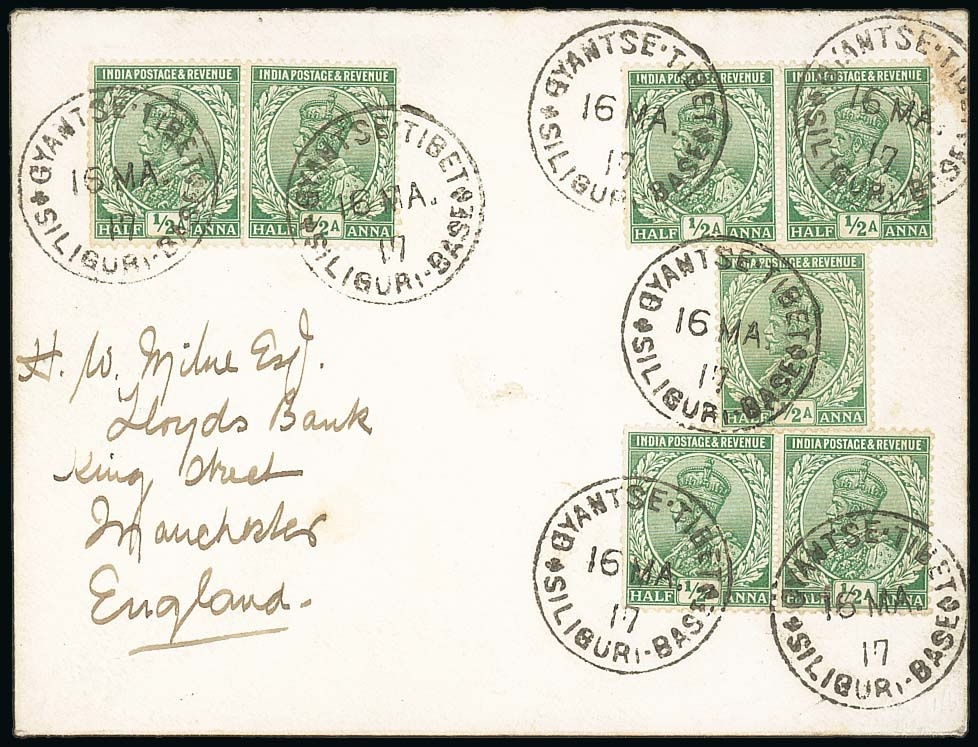 INDIA POSTAGE & REVENUE
½A
HALF ANNA
INDIA POSTAGE & REVENUE
½A
HALF ANNA
GYANTSE·TIBET
16 MA.
17
SILIGURI-BASE
GYANTSE·TIBET
16 MA.
17
SILIGURI-BASE
INDIA POSTAGE & REVENUE
½A
HALF ANNA
INDIA POSTAGE & REVENUE
½A
HALF ANNA
GYANTSE·TIBET
16 MA.
17
SILIGURI-BASE
GYANTSE·TIBET
16 MA.
17
SILIGURI-BASE
INDIA POSTAGE & REVENUE
½A
HALF ANNA
GYANTSE·TIBET
16 MA.
17
SILIGURI-BASE
H. W. Milne Esq.
Lloyds Bank
King Street
Manchester
England.
INDIA POSTAGE & REVENUE
½A
HALF ANNA
INDIA POSTAGE & REVENUE
½A
HALF ANNA
GYANTSE·TIBET
16 MA.
17
SILIGURI-BASE
GYANTSE·TIBET
16 MA.
17
SILIGURI-BASE